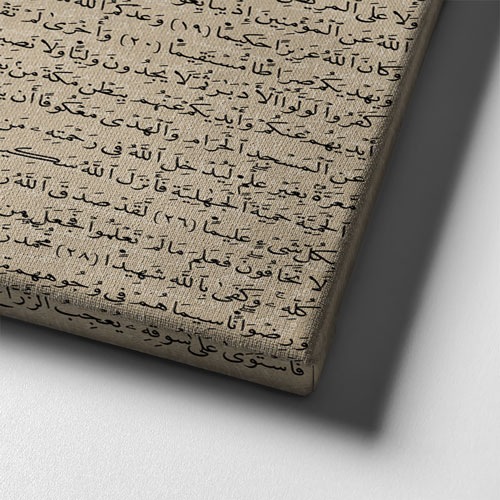 لَا عَلَى الْمُؤْمِنِينَ إِذْ يُبَايِعُو
اللَّهُ عَنِ الْمُؤْمِنِينَ
وَكَانَ اللَّهُ عَزِيزًا حَكِيمًا (١٩) وَعَدَكُمُ اللَّهُ
وَيَهْدِيَكُمْ صِرَاطًا مُّسْتَقِيمًا (٢٠) وَأُخْرَىٰ لَمْ تَقْ
كَفَرُوا لَوَلَّوُا الْأَدْبَارَ ثُمَّ لَا يَجِدُونَ وَلِيًّا وَلَا نَصِ
أَيْدِيَهُمْ عَنكُمْ وَأَيْدِيَكُمْ عَنْهُم بِبَطْنِ مَكَّةَ مِن بَعْ
عَنِ الْمَسْجِدِ الْحَرَامِ وَالْهَدْيَ مَعْكُوفًا أَن يَبْ
مَّعَرَّةٌ بِغَيْرِ عِلْمٍ لِّيُدْخِلَ اللَّهُ فِي رَحْمَتِهِ مَن
الْحَمِيَّةَ حَمِيَّةَ الْجَاهِلِيَّةِ فَأَنزَلَ اللَّهُ سَك
بِكُلِّ شَيْءٍ عَلِيمًا (٢٦) لَّقَدْ صَدَقَ اللَّهُ رَ
لَا تَخَافُونَ فَعَلِمَ مَا لَمْ تَعْلَمُوا فَجَعَلَ مِن
كُلِّهِ وَكَفَىٰ بِاللَّهِ شَهِيدًا (٢٨) مُّحَمَّدٌ ر
وَرِضْوَانًا سِيمَاهُمْ فِي وُجُوهِهِم
فَاسْتَوَىٰ عَلَىٰ سُوقِهِ يُعْجِبُ الزُّرَّاعَ